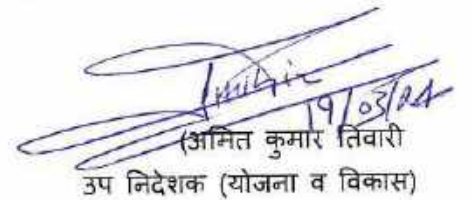 19/03/24
(अमित कुमार तिवारी
उप निदेशक (योजना व विकास)